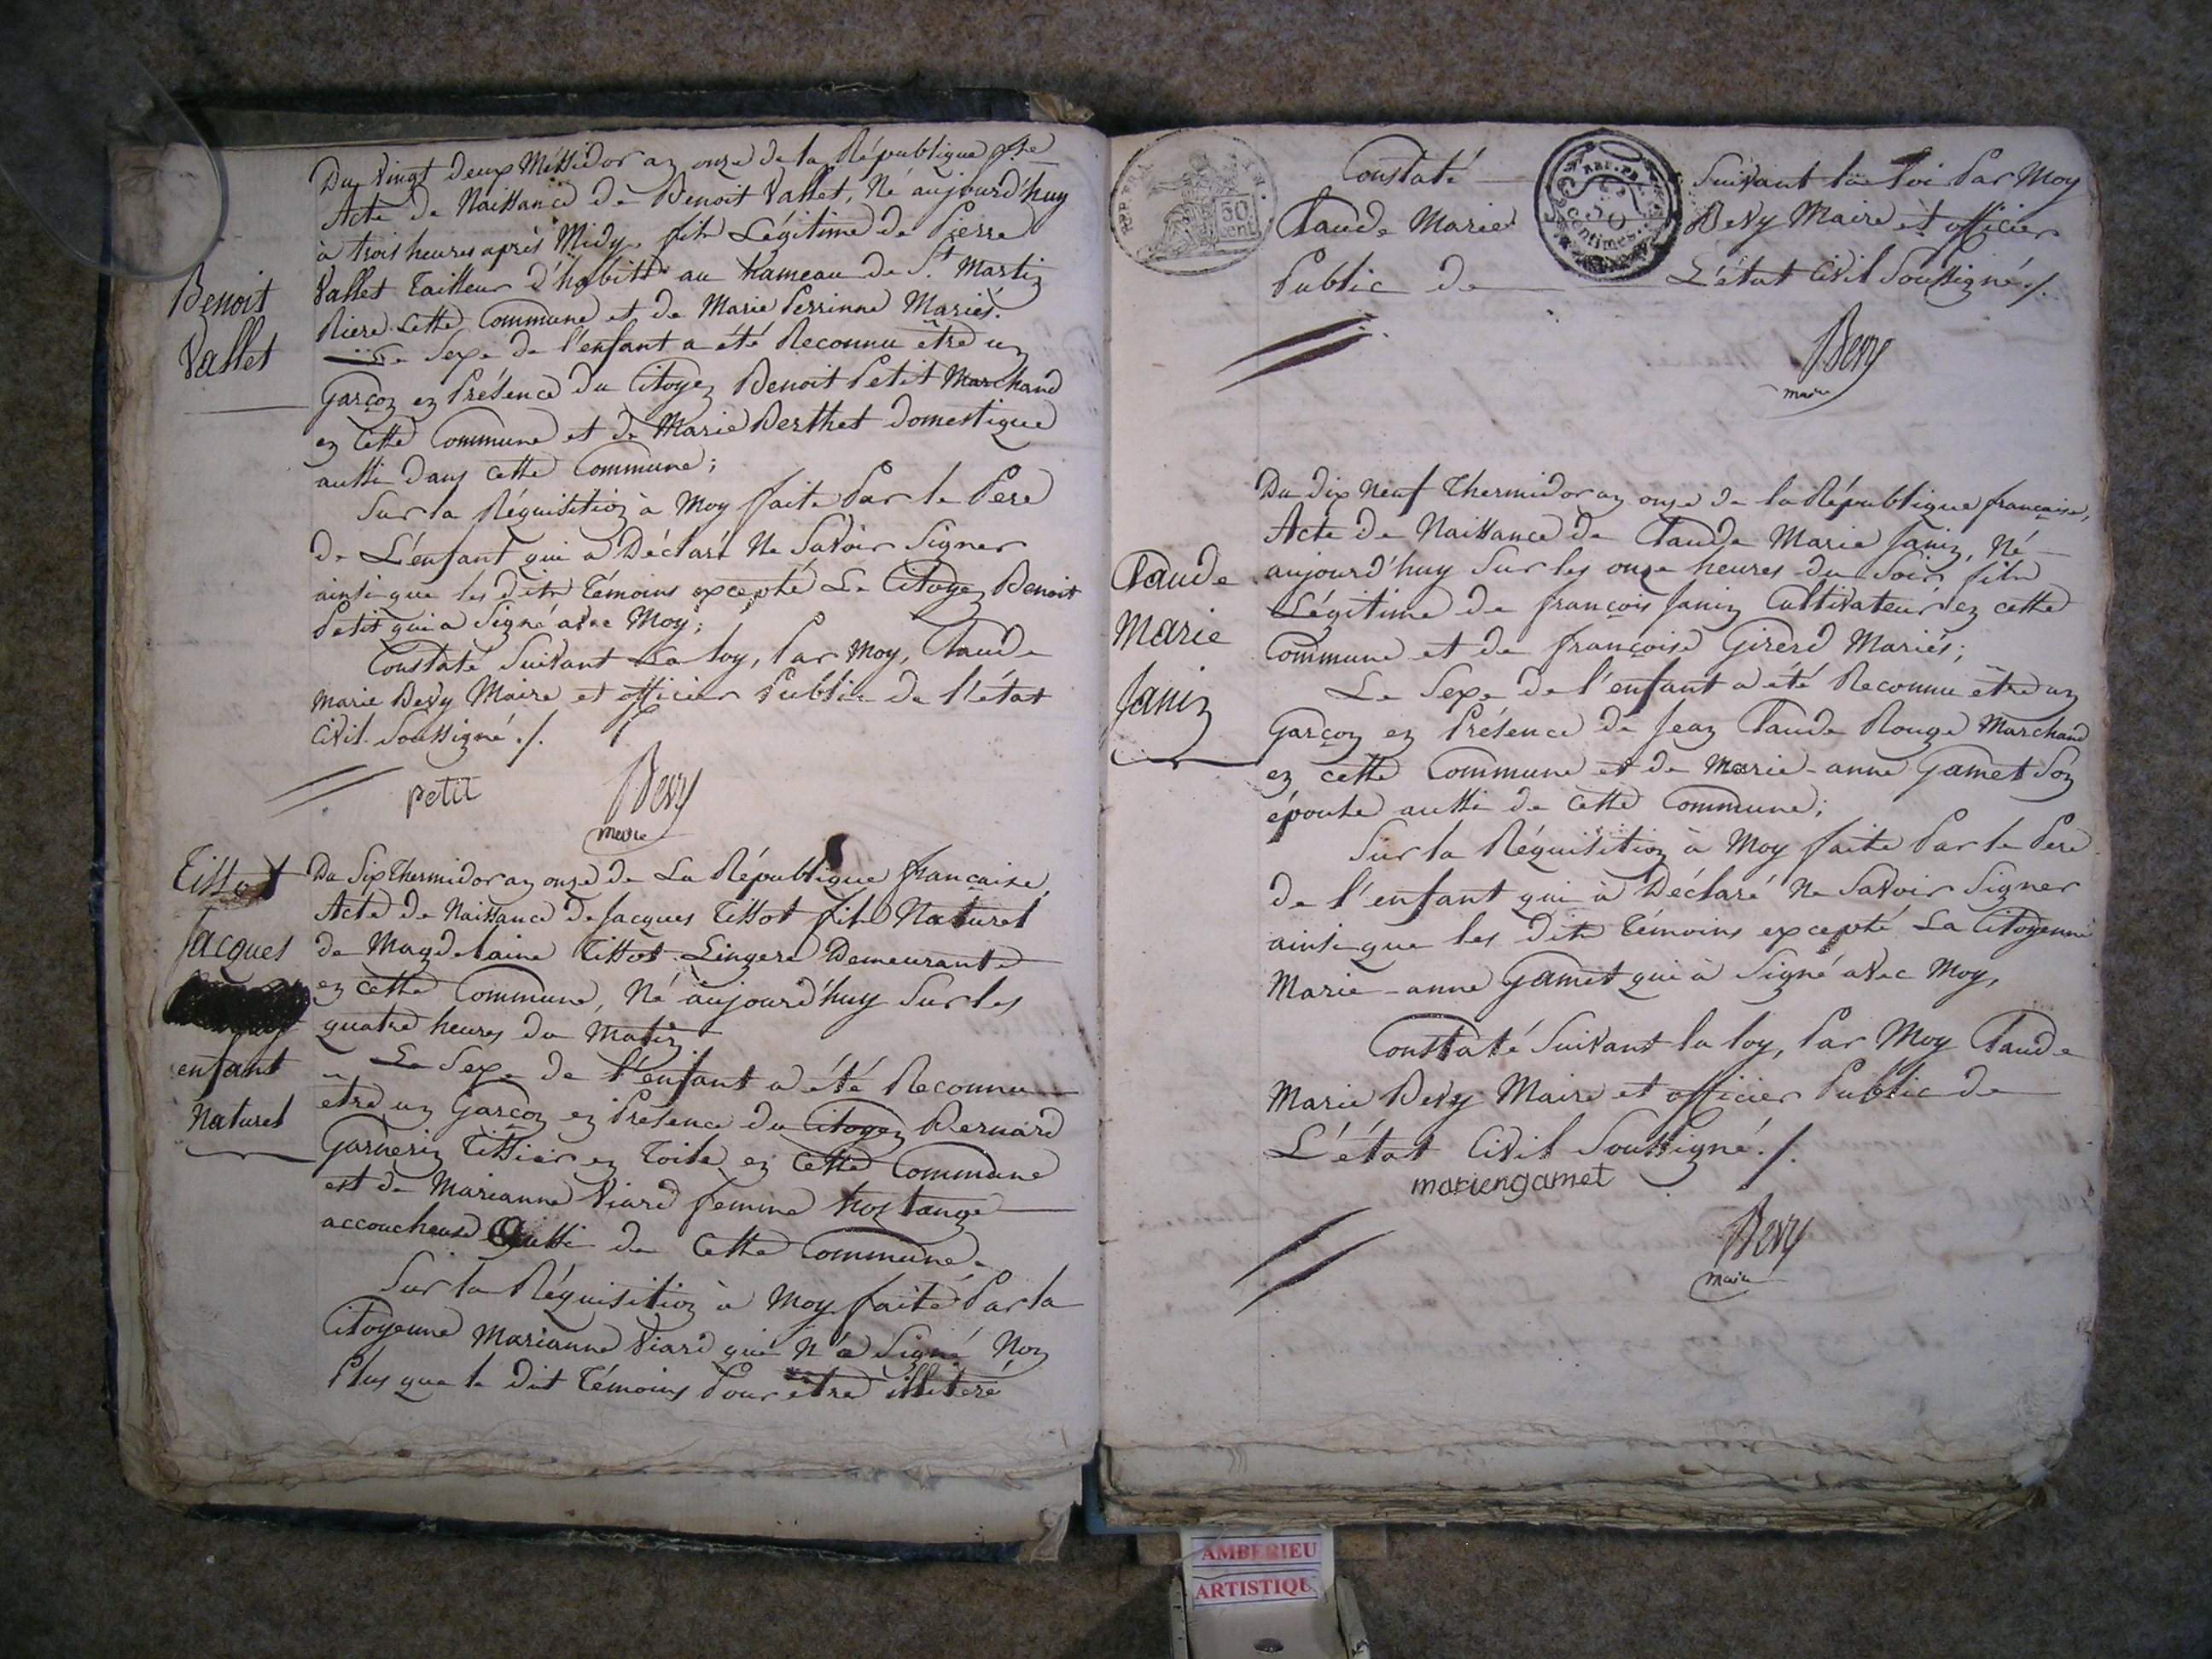 Du Vingt Deux Messidor an onze de la République fse
Acte de Naissance de Benoit Vallet, Né aujourd'huy
à trois heures après Midy, fils Légitime de Pierre
Vallet Tailleur d'habits au hameau de St. Martin
Riere Cette Commune et de Marie Perrinne Mariés.
Benoit
Vallet
Le Sexe de l'enfant a été Reconnu être un
Garçon en Présence du Citoyen Benoit Petit Marchand
en Cette Commune et de Marie Berthet Domestique
aussi Dans cette Commune;
Sur la Réquisition à Moy faite Par le Pere
de L'enfant qui a Déclaré Ne Savoir Signer
ainsi que les dits Témoins excepté Le Citoyen Benoit
Petit qui a Signé avec Moy;
Constaté Suivant La loy, Par Moy, Claude
Marie Bevy Maire et officier Public de l'état
Civil Soussigné ./.
petit
Bevy
maire
Tissot
Jacques
enfant
Naturel
Du Six Thermidor an onze de La République française,
Acte de Naissance de Jacques Tissot fils Naturel
de Magdelaine Tissot Lingere Demeurante
en cette Commune, Né aujourd'huy Sur les
quatre heures du Matin
Le Sexe de l'enfant a été Reconnu
etre un Garçon en Présence du Citoyen Bernard
Garnerin Tissier en Toile en Cette Commune
est de Marianne Viard femme
accoucheuse Aussi de Cette Commune.
Sur la Réquisition à Moy faite Par la
Citoyenne Marianne Viard qui N'a Signé Non
Plus que le dit Témoins Pour être illiteré
Constaté Suivant la Loi Par Moy
Claude Marie Bevy Maire et officier
Public de L'état Civil Soussigné ./.
REP. FRA.
50
cent.
REP. FRA.
50
centimes.
Bevy
maire
Du Dix Neuf Thermidor an onze de la République française,
Acte de Naissance de Claude Marie Janin, Né
aujourd'huy Sur les onze heures du Soir fils
Légitime de françois Janin Cultivateur en cette
Commune et de françoise Girerd Mariés;
Claude
Marie
Janin
Le Sexe de l'enfant a été Reconnu être un
Garçon en Présence de Jean Claude Rouge Marchand
en cette Commune et de Marie-anne Gamet Son
épouse aussi de Cette Commune;
Sur la Réquisition à Moy faite Par le Pere
de l'enfant qui à Déclaré Ne Savoir Signer
ainsi que les Dits Témoins excepté La Citoyenne
Marie-anne Gamet qui à Signé avec Moy,
Constaté Suivant la loy, Par Moy Claude
Marie Bevy Maire et officier Public de
L'état Civil Soussigné ./.
mariengamet
Bevy
maire
AMBERIEU
ARTISTIQU